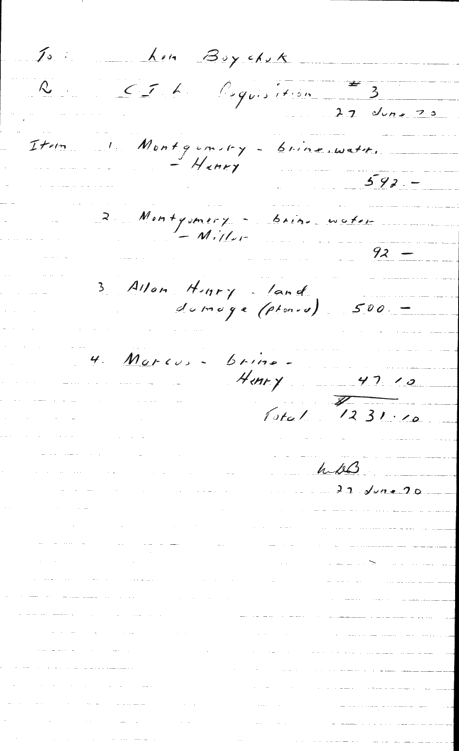 To : Len Boychuk
R : C I L Requisition # 3
27 June 70
Item 1. Montgomery - brine water
- Henry
592 -
2 Montgomery - brine water
- Miller
92 -
3 Allan Henry - land
damage (phoned) 500 -
4. Marcus - brine -
Henry 47 10
Total 1231.10
27 June 70